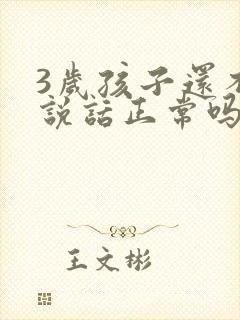 3歲孩子還不
說話正常嗎
王文彬